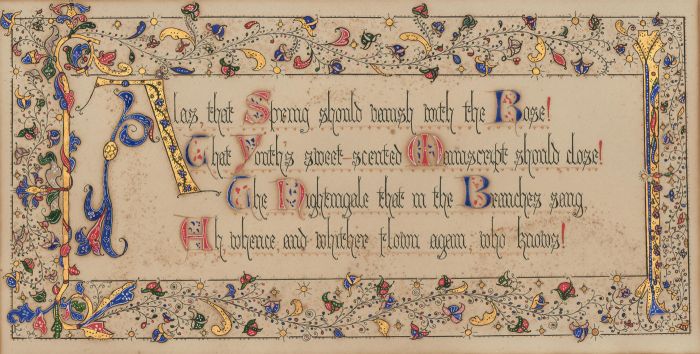 Alas, that Spring should vanish with the Rose!
That Youth's sweet-scented Manuscript should close!
The Nightingale that in the Branches sang,
Ah, whence, and whither flown again, who knows!